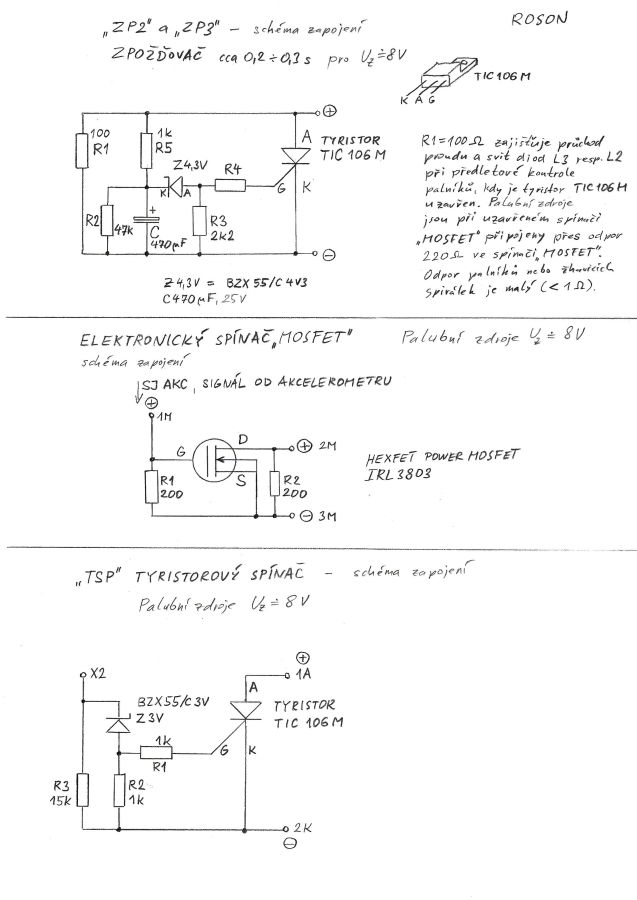 ROSON
„ZP2" a „ZP3" – schéma zapojení
ZPOŽĎOVAČ cca 0,2 ÷ 0,3 s pro Uz ≐ 8V
TIC 106 M
K A G
100
R1
1k
R5
Z 4,3V
K A
R4
A
TYRISTOR
TIC 106 M
G
K
R2
47k
+
C
470µF
R3
2k2
⊕
⊖
Z 4,3V = BZX 55/C 4V3
C 470µF, 25V
R1 = 100 Ω zajišťuje průchod
proudu a svit diod L3 resp. L2
při předletové kontrole
palníků, kdy je tyristor TIC 106 M
uzavřen. Palubní zdroje
jsou při uzavřeném spínači
„MOSFET" připojeny přes odpor
220 Ω ve spínači „MOSFET".
Odpor palníků nebo žhavících
spirálek je malý (< 1 Ω).
ELEKTRONICKÝ SPÍNAČ „MOSFET" Palubní zdroje Uz ≐ 8V
schéma zapojení
SJ AKC, SIGNÁL OD AKCELEROMETRU
⊕
1M
G
D
S
⊕ 2M
R1
200
R2
200
⊖ 3M
HEXFET POWER MOSFET
IRL 3803
„TSP" TYRISTOROVÝ SPÍNAČ – schéma zapojení
Palubní zdroje Uz ≐ 8V
X2
⊕
1A
A
BZX55/C3V
Z 3V
TYRISTOR
TIC 106 M
1k
R1
G
K
R3
15k
R2
1k
2K
⊖